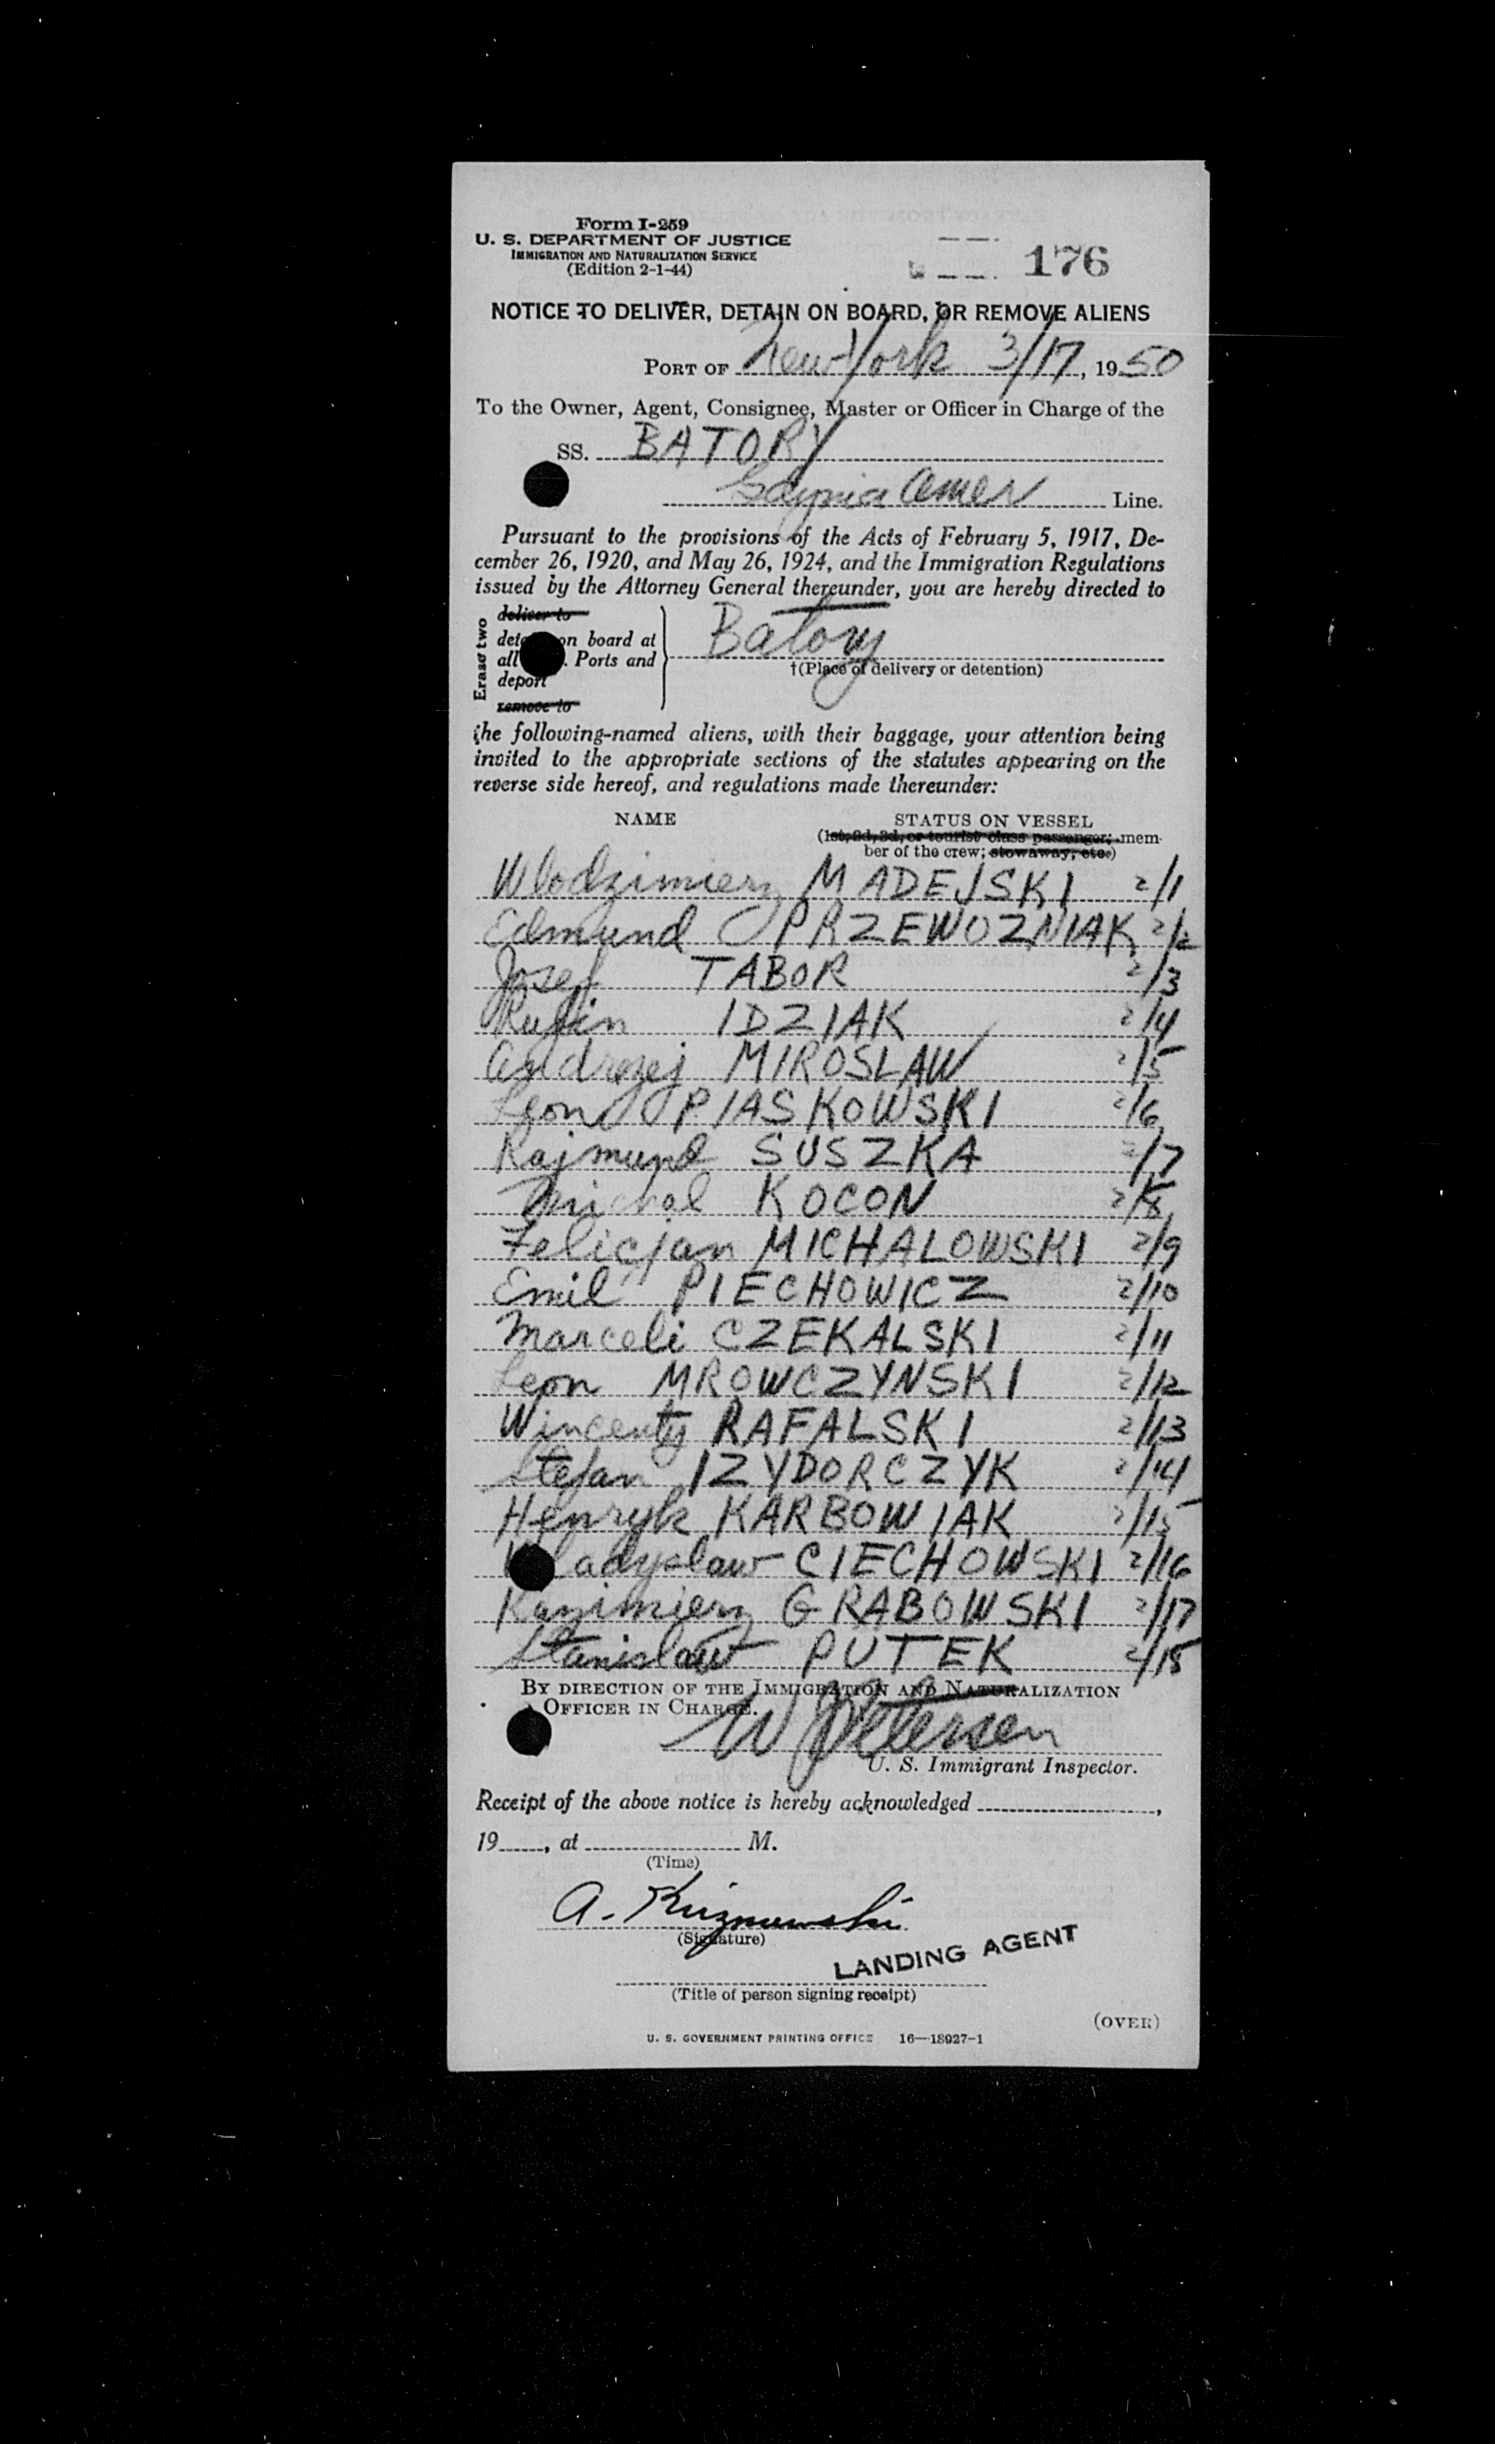 Form I-259
U. S. DEPARTMENT OF JUSTICE
IMMIGRATION AND NATURALIZATION SERVICE
(Edition 2-1-44)
176
NOTICE TO DELIVER, DETAIN ON BOARD, OR REMOVE ALIENS
PORT OF New York 3/17, 1950
To the Owner, Agent, Consignee, Master or Officer in Charge of the
SS. BATORY
Gdynia Amer Line.
Pursuant to the provisions of the Acts of February 5, 1917, De-
cember 26, 1920, and May 26, 1924, and the Immigration Regulations
issued by the Attorney General thereunder, you are hereby directed to
Erase two
deliver to
on board at
all Ports and
deport
remove to
Batory
†(Place of delivery or detention)
the following-named aliens, with their baggage, your attention being
invited to the appropriate sections of the statutes appearing on the
reverse side hereof, and regulations made thereunder:
NAME STATUS ON VESSEL
(1st, 2d, 3d, or tourist class passenger; mem-
ber of the crew; stowaway, etc.)
Wlodzimierz MADEJSKI 2/1
Edmund PRZEWOZNIAK 2/2
Josef TABOR 2/3
IDZIAK 2/4
Andrzej MIROSLAW 2/5
Leon PIASKOWSKI 2/6
Rajmund SUSZKA 2/7
Michal KOCON 2/8
Felicjan MICHALOWSKI 2/9
Emil PIECHOWICZ 2/10
Marceli CZEKALSKI 2/11
Leon MROWCZYNSKI 2/12
Wincenty RAFALSKI 2/13
Stefan IZYDORCZYK 2/14
Henryk KARBOWIAK 2/15
Wladyslaw CIECHOWSKI 2/16
Kazimierz GRABOWSKI 2/17
Stanislaw PUTEK 2/18
BY DIRECTION OF THE IMMIGRATION AND NATURALIZATION
OFFICER IN CHARGE.
W Petersen
U. S. Immigrant Inspector.
Receipt of the above notice is hereby acknowledged ,
19 , at M.
(Time)
A.
(Signature)
LANDING AGENT
(Title of person signing receipt)
(OVER)
U. S. GOVERNMENT PRINTING OFFICE 16—18927-1